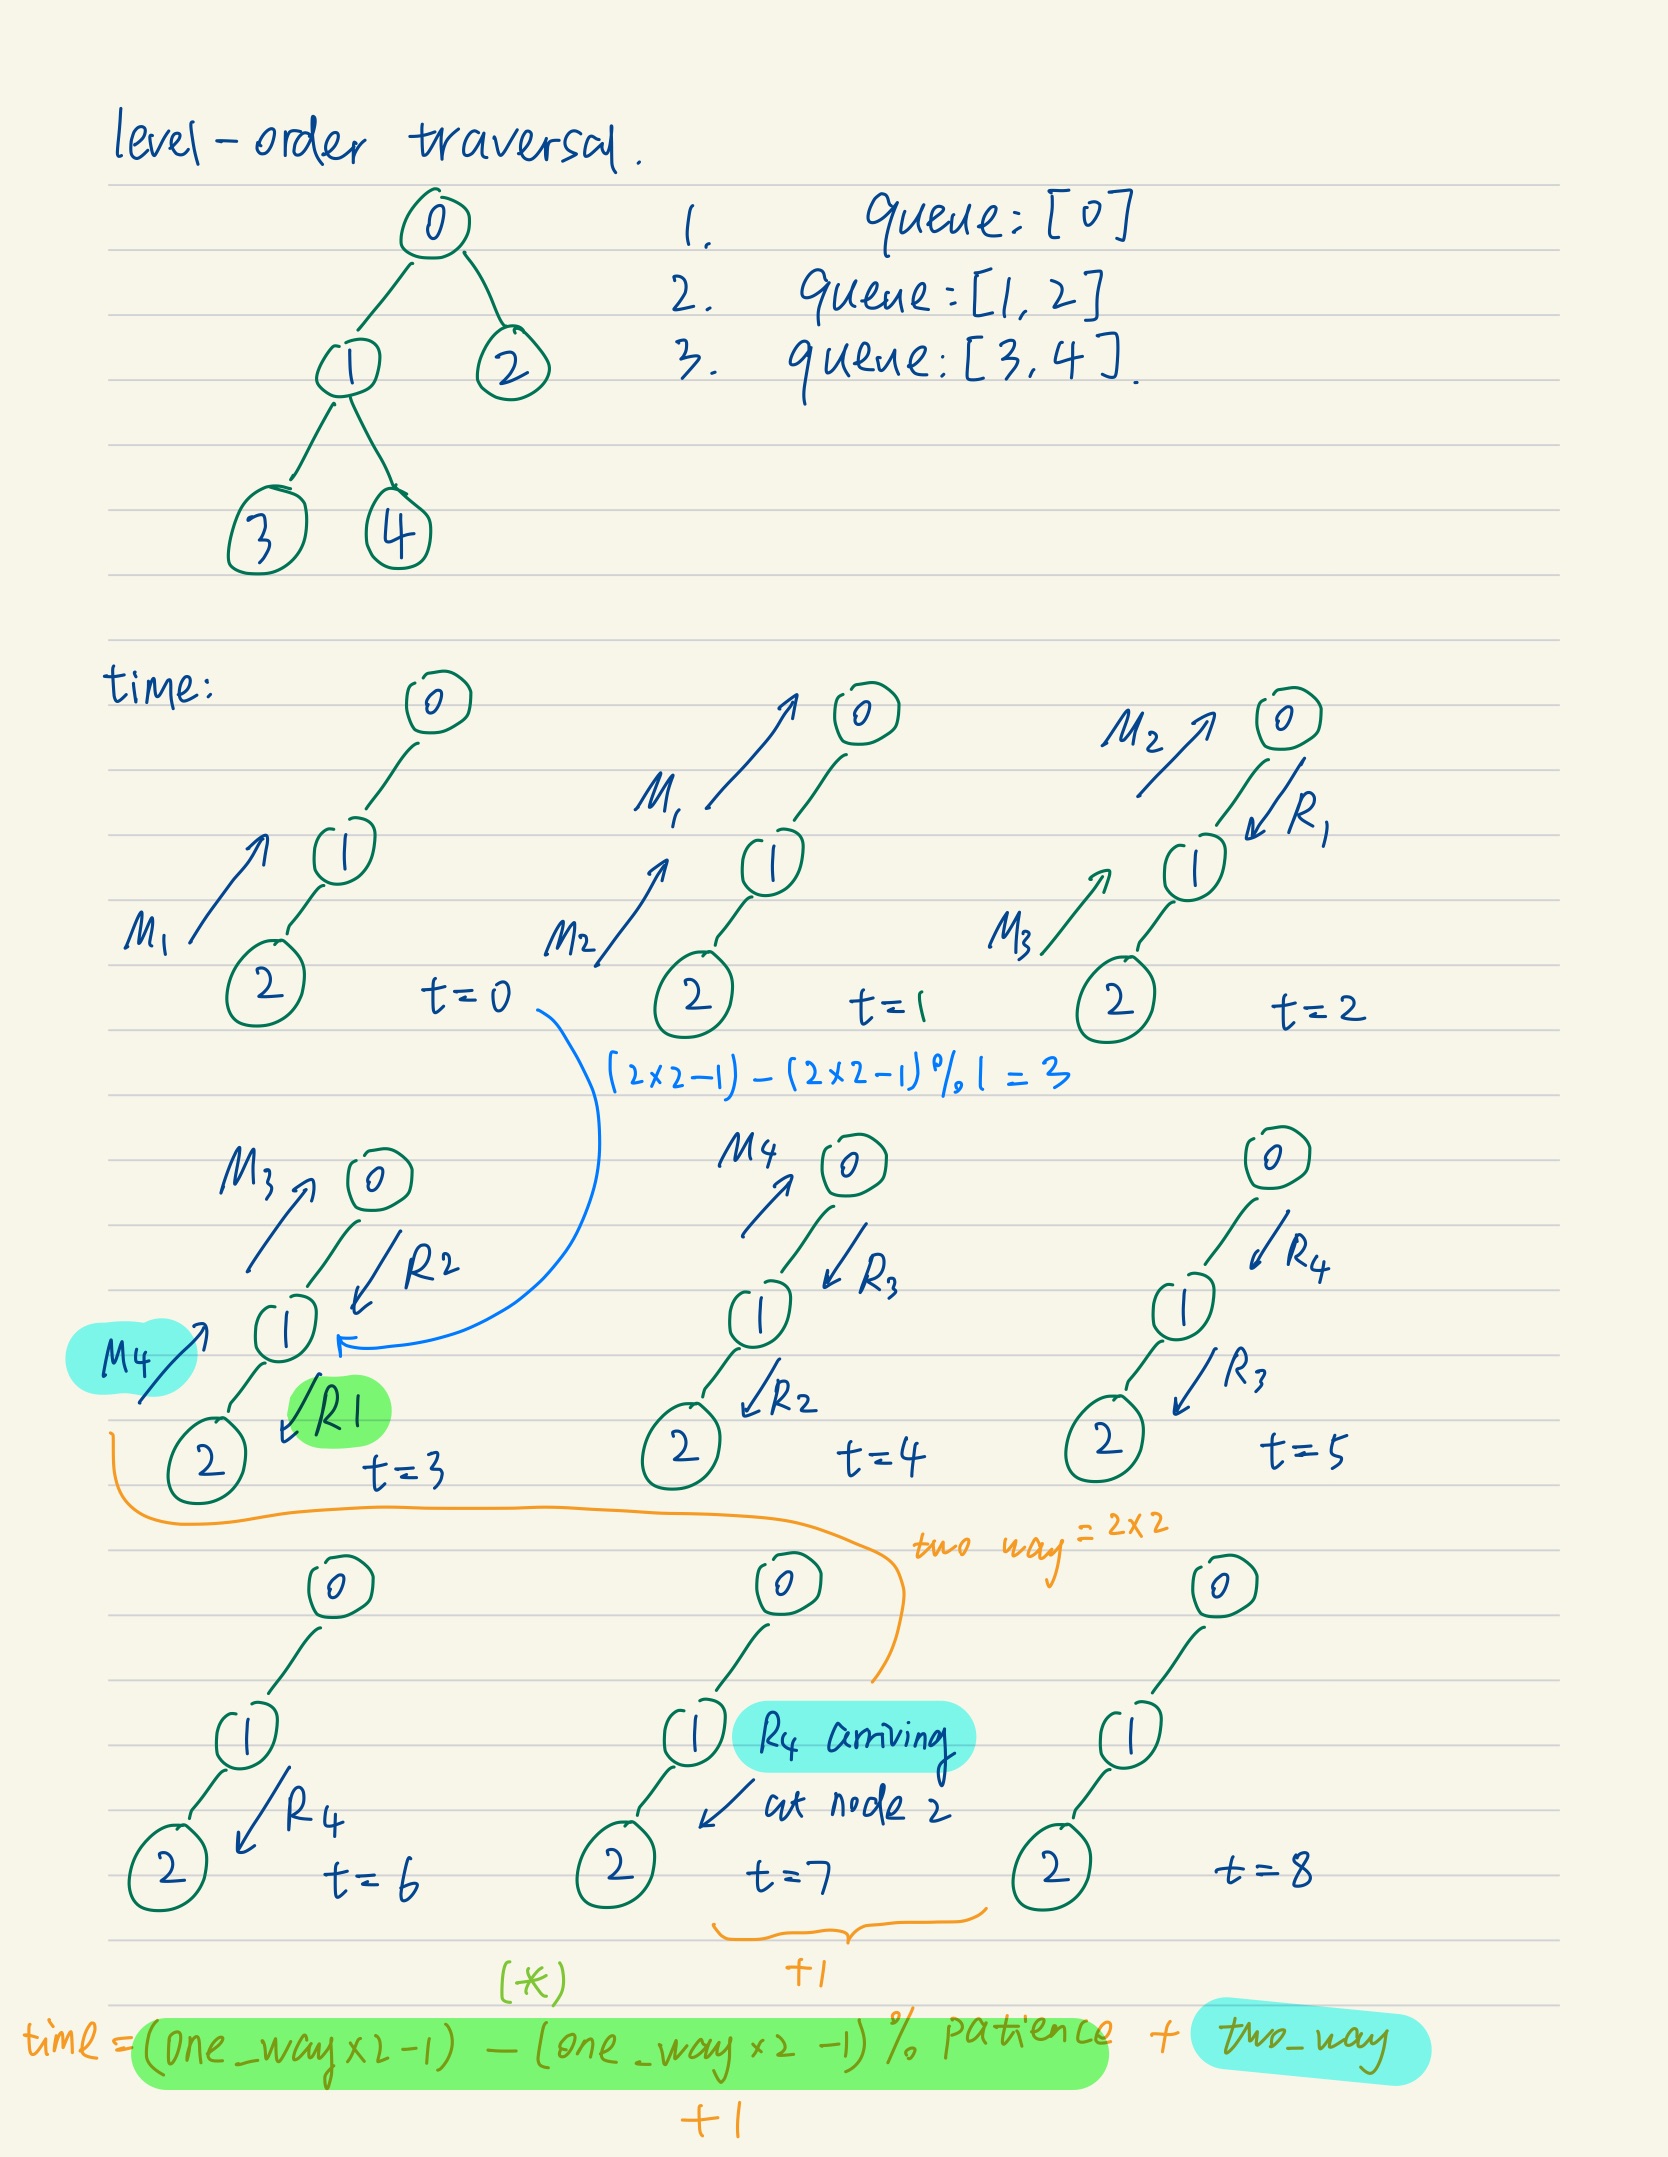 level-order traversal.
0
1. queue: [0]
2. queue: [1, 2]
1
2
3. queue: [3, 4].
3
4
time:
0
1
M1
2
t=0
0
M1
1
M2
2
t=1
0
M2
R1
1
M3
2
t=2
(2×2-1) - (2×2-1)%1 = 3
0
M3
R2
1
M4
R1
2
t=3
0
M4
R3
1
R2
2
t=4
0
R4
1
R3
2
t=5
two way = 2×2
0
1
R4
2
t=6
0
1
R4 arriving
at node 2
2
t=7
0
1
2
t=8
+1
(*)
time = (one_way×2-1) - (one_way×2-1)% patience + two_way
+1